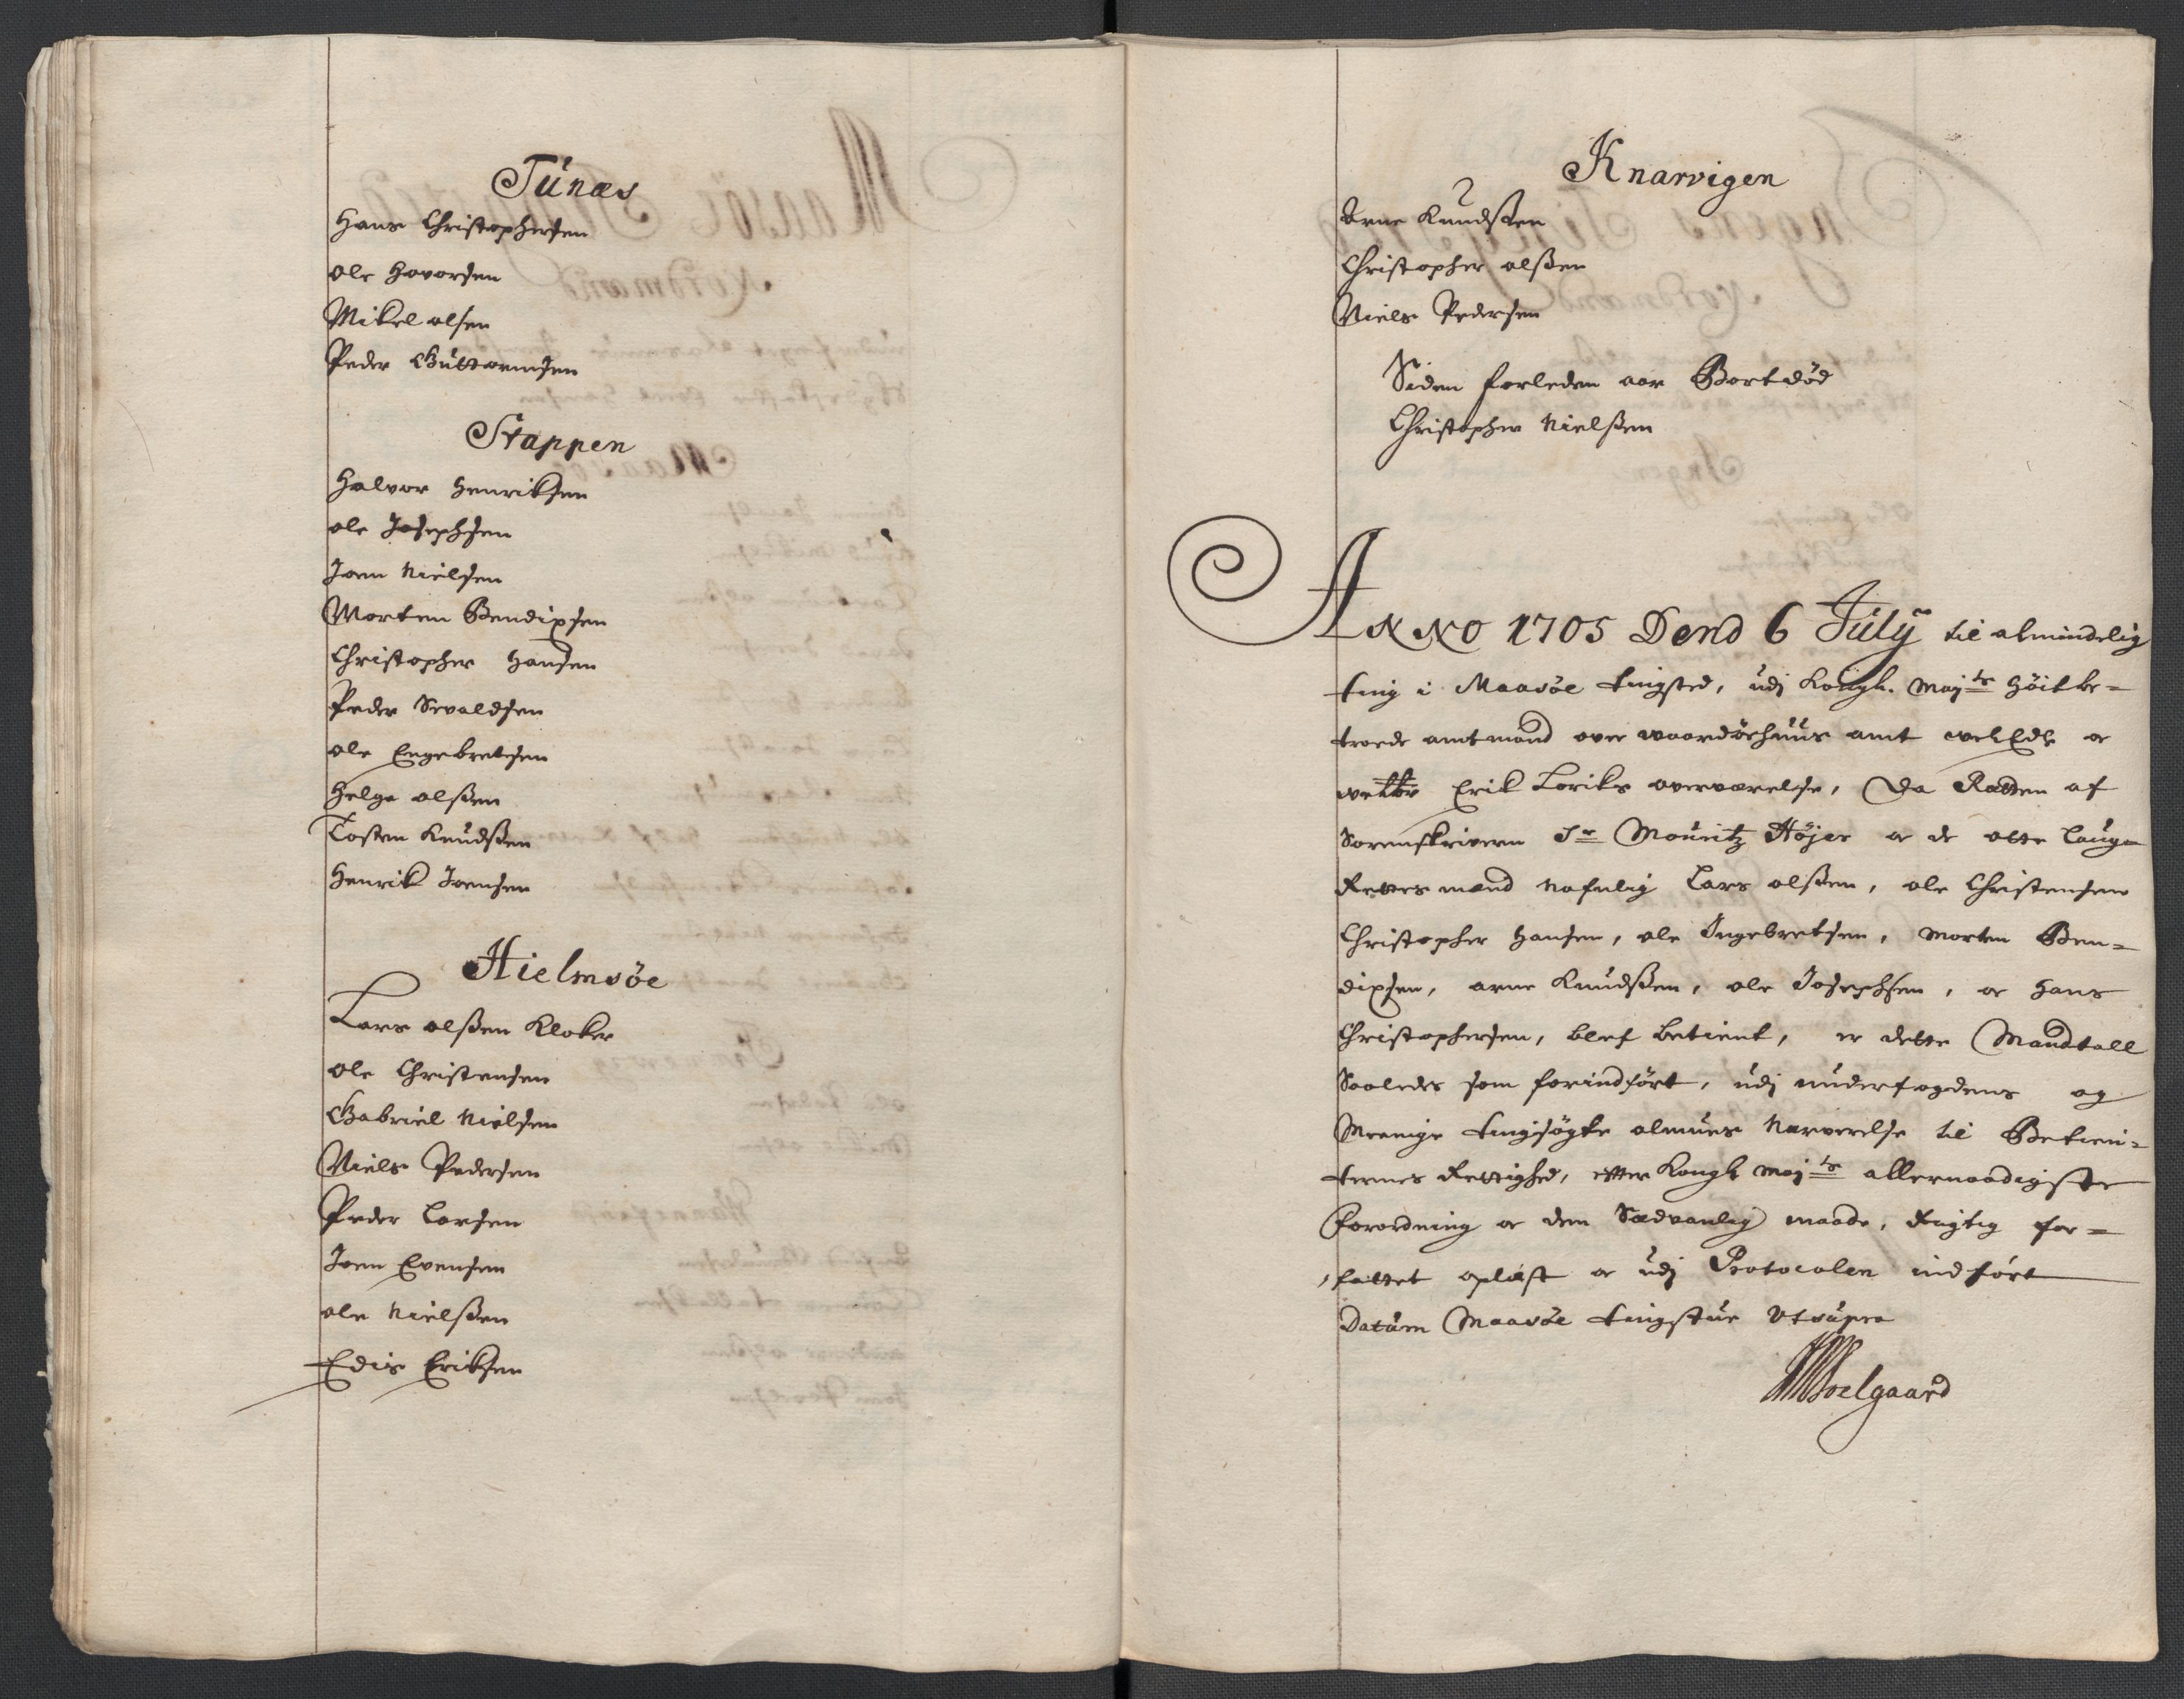 Tünæs
Hans Christophersen
ole Havorsen
Mikel olsen
Peder Guttormsen
Stappen
Halvor Henriksen
ole Josephsen
Joen Nielsen
Morten Bendixsen
Christopher Hansen
Peder Sivaldsen
ole Engebretsen
Helge olssen
Tosten Knüdssen
Henrik Joensen
Hielmsöe
Lars olssen Kloker
ole Christensen
Gabriel Nielsen
Niels Pedersen
Peder Larsen
Joen Evensen
ole Nielssen
Edis Eriksen
Knarvigen
Arne Knudssen
Christopher olssen
Niels Pedersen
Siden forleden aar Bortdöd
Christopher Nielssen
ANNO 1705 Dend 6 Julÿ til almindelig
ting i Maasöe tingsted, udj Kongl. Maj:ts Höitbe=
troede amtmand over waardöehuus amt welEdle oc
Erik Loriks overværelse, Da Rætten af
Sorenskriveren Sr Mouritz Höjer oc de otte Laug
Rettes mænd nafnlig Lars olssen, ole Christensen
Christopher Hansen, ole Ingebretsen, Morten Ben=
dixsen, arne Knudssen, ole Josephsen, oc Hans
Christophersen, blef betient, er dette Mandtall
Saaledes som forindfört, udj underfogdens og
Meenige tingsögte almues Nærverelse til Betien=
ternes Rettighed, efter Kongl Maj:ts allernaadigste
Forordning oc den Sædvanlig maade, Rigtig for=
fattet oplæst oc udj Protocolen indfört
Datum Maasöe tingstue Utsupra
Soelgaard